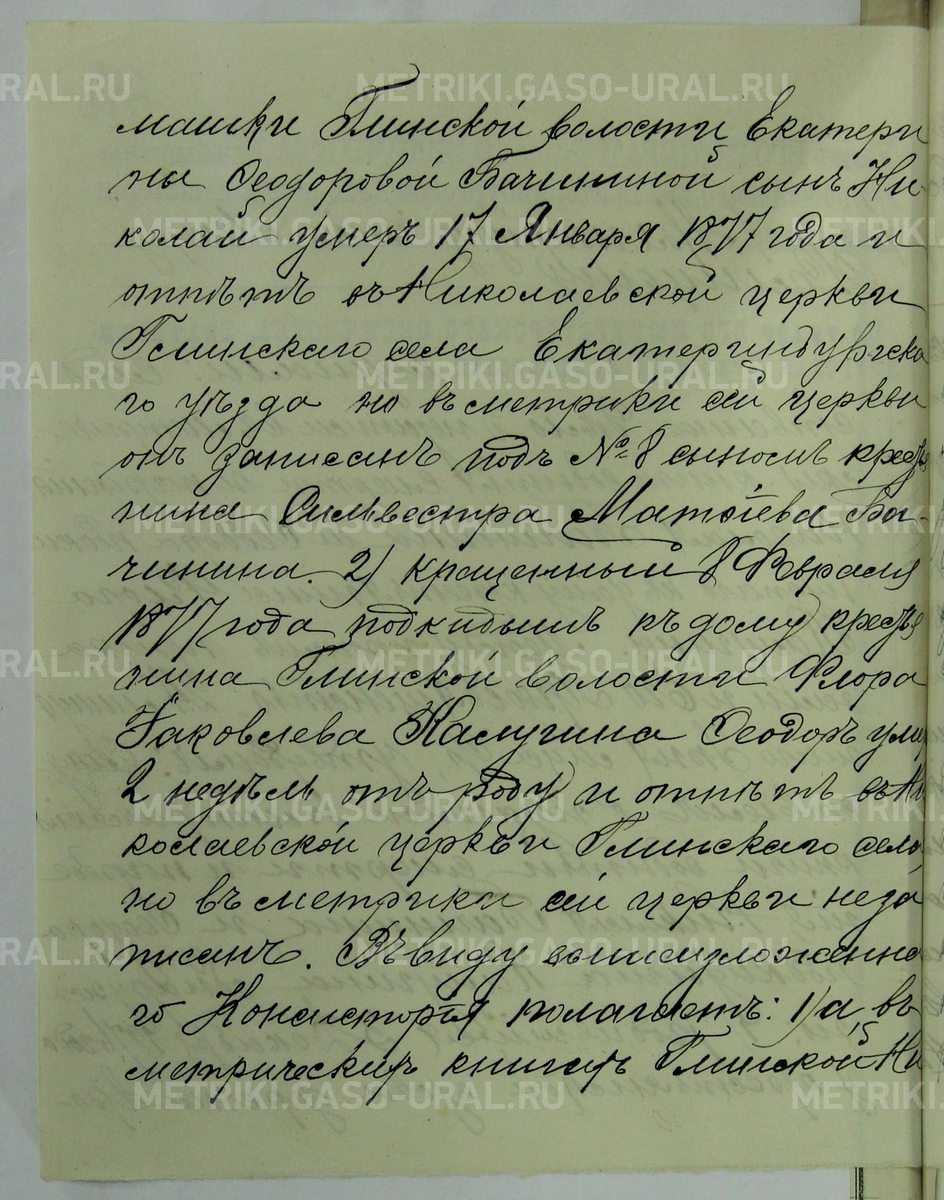 машки Глинской волости Екатери
ны Ѳеодоровой Бачининой сынъ Ни-
колай умеръ 17 Января 1877 года и
отпѣтъ въ Николаевской церкви
Глинскаго села Екатеринбургска
го уѣзда но въ метрики сей церкви
онъ записанъ подъ № 8 сыномъ крестья
нина Сильвестра Матѳѣева Ба-
чинина. 2) крещенный 8 Февраля
1877 года подкидышъ къ дому крестья
нина Глинской волости Флора
Іаковлева Калугина Ѳеодоръ уме
2 недѣль отъ роду и отпѣтъ въ Ни
колаевской церкви Глинскаго села
но въ метрики сей церкви неза
писанъ. Въ виду вышеизложенна
го Консисторія полагаетъ: 1) а, въ
метрическихъ книгахъ Глинской Ни
METRIKI.GASO-URAL.RU